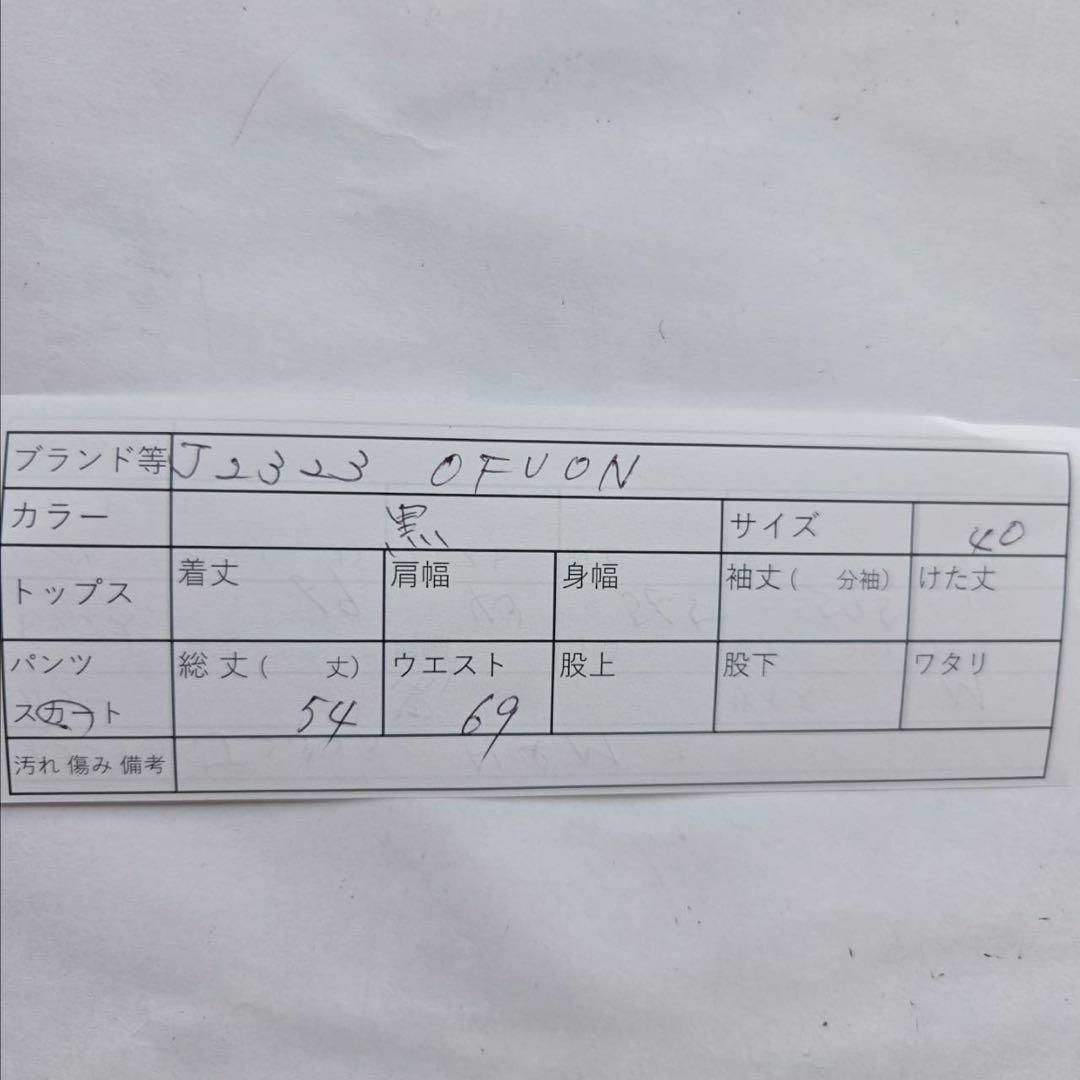 ブランド等 J2323 OFUON
カラー 黒 サイズ 40
トップス 着丈 肩幅 身幅 袖丈( 分袖) けた丈
パンツ 総丈( 丈) ウエスト 股上 股下 ワタリ
スカート 54 69
汚れ 傷み 備考